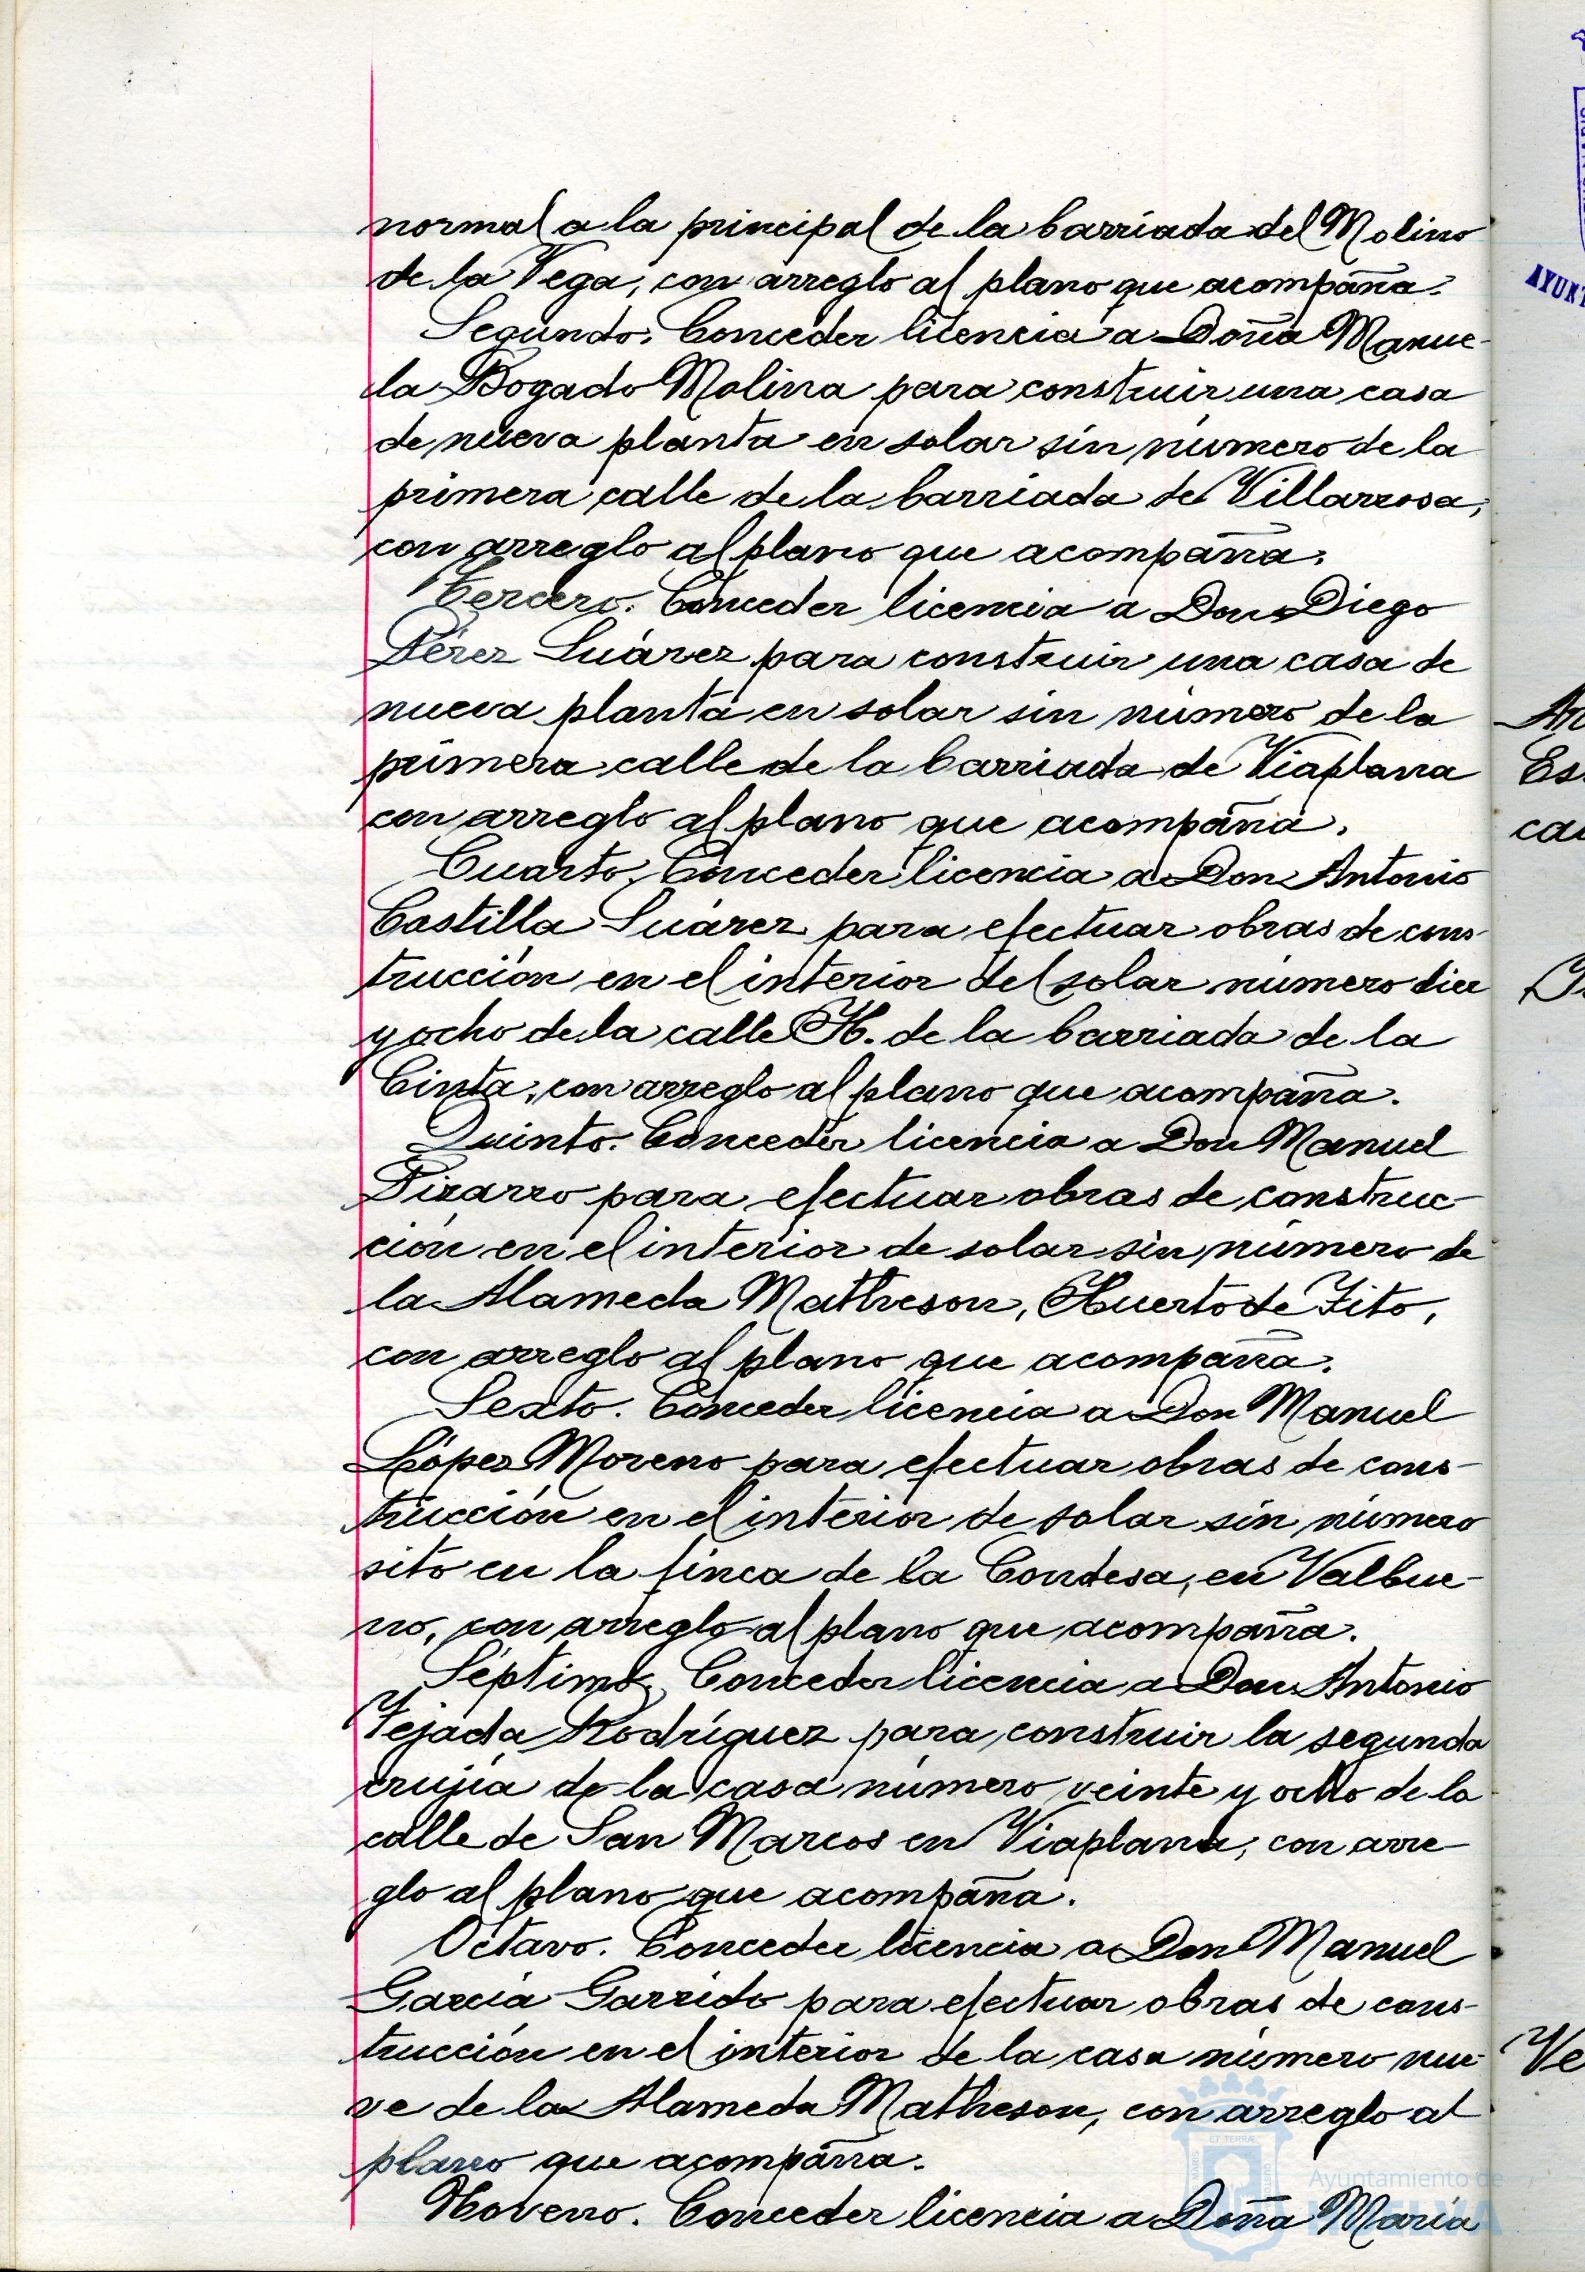 normal a la principal de la barriada del Molino
de la Vega, con arreglo al plano que acompaña.
Segundo. Conceder licencia a Doña Manue-
la Bogado Molina para construir una casa
de nueva planta en solar sin número de la
primera calle de la barriada de Villarrosa,
con arreglo al plano que acompaña.
Tercero. Conceder licencia a Don Diego
Pérez Suárez para construir una casa de
nueva planta en solar sin número de la
primera calle de la barriada de Viaplana
con arreglo al plano que acompaña.
Cuarto. Conceder licencia a Don Antonio
Castilla Suárez para efectuar obras de cons-
trucción en el interior del solar número diez
y ocho de la calle H. de la barriada de la
Cinta, con arreglo al plano que acompaña.
Quinto. Conceder licencia a Don Manuel
Pizarro para efectuar obras de construc-
ción en el interior de solar sin número de
la Alameda Matheson, Huerto de Tito,
con arreglo al plano que acompaña.
Sexto. Conceder licencia a Don Manuel
López Moreno para efectuar obras de cons-
trucción en el interior de solar sin número
sito en la finca de la Condesa, en Valbue-
no, con arreglo al plano que acompaña.
Séptimo. Conceder licencia a Don Antonio
Tejada Rodríguez para construir la segunda
crujía de la casa número veinte y ocho de la
calle de San Marcos en Viaplana, con arre-
glo al plano que acompaña.
Octavo. Conceder licencia a Don Manuel
García Garrido para efectuar obras de cons-
trucción en el interior de la casa número nue-
ve de la Alameda Matheson, con arreglo al
plano que acompaña.
Noveno. Conceder licencia a Doña María
Ayuntamiento de
HUELVA
AYUNT
Es
ca
Ve